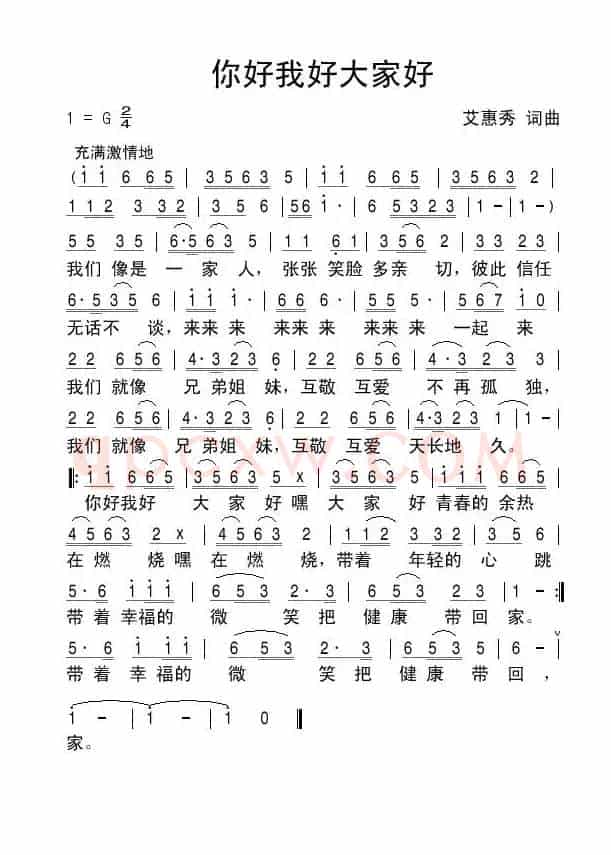 你好我好大家好
1 = G 2/4
艾惠秀 词曲
充满激情地
(i i 6 6 5 | 3 5 6 3 5 | i i 6 6 5 | 3 5 6 3 2 |
1 1 2 3 3 2 | 3 5 6 | 5 6 i · | 6 5 3 2 3 | 1 - | 1 - )
5 5 3 5 | 6 · 5 6 3 | 5 - | 1 1 6 1 | 3 5 6 | 2 - | 2 2 3 2 |
我们 像是 一 家 人, 张张 笑脸 多亲 切, 彼此 信任
6 · 5 3 5 | 6 | i i | i · | 3 3 | 3 · | 5 5 | 5 · | 5 6 7 | i 0 |
无话不 谈, 来来 来 来来 来 来来 来 一起 来
2 2 6 5 6 | 4 · 3 2 3 | 6 2 2 | 6 5 6 | 4 · 3 2 3 | 5 - |
我们 就像 兄 弟姐 妹, 互敬 互爱 不 再 孤 独,
2 2 6 5 6 | 4 · 3 2 3 | 6 2 2 | 6 5 6 | 4 · 3 2 3 | 1 - | 1 - |
我们 就像 兄 弟姐 妹, 互敬 互爱 天长地 久。
‖: i i 6 6 5 | 3 5 6 3 | 5 x | 3 5 6 3 | 5 i i | 6 6 5 |
你好我好 大 家 好嘿 大 家 好 青春的 余热
4 5 6 3 | 2 x | 4 5 6 3 | 2 | 1 1 2 | 3 3 2 | 3 5 6 |
在 燃 烧嘿 在 燃 烧, 带着 年轻的 心 跳
5 · 6 | i i i | 6 6 5 3 5 6 3 | 2 · 3 | 6 5 3 5 | 2 3 | 1 - :‖
带 着 幸福的 微 笑 把 健 康 带 回 家。
5 · 6 | i i i | 6 6 5 | 3 5 6 3 | 2 · 3 | 6 5 3 5 | 6 · 5 |
带 着 幸 福的 微 笑 把 健 康 带 回,
i - | i - | i 0 ‖
家。